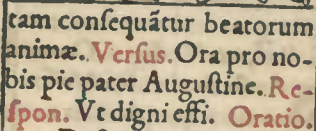 tam conſequãtur beatorum
animæ. Verſus. Ora pro no-
bis pie pater Auguſtine. Re-
ſpon. Vt digni eſſi. Oratio.